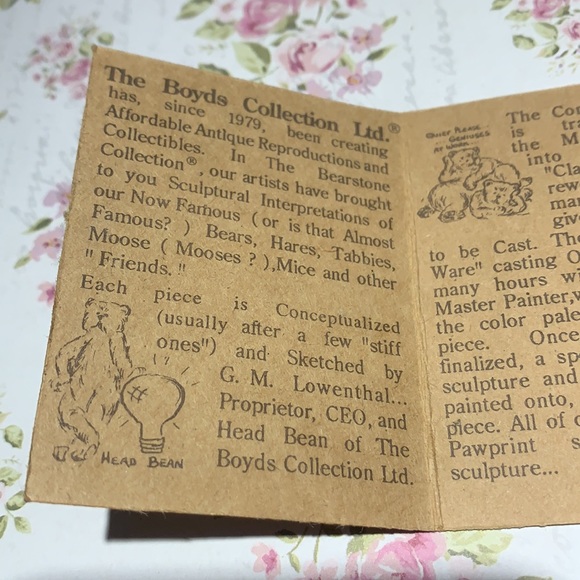 The Boyds Collection Ltd.®
has, since 1979, been creating
Affordable Antique Reproductions and
Collectibles. In The Bearstone
Collection®, our artists have brought
to you Sculptural Interpretations of
our Now Famous (or is that Almost
Famous?) Bears, Hares, Tabbies,
Moose (Mooses?), Mice and other
"Friends."
Each piece is Conceptualized
(usually after a few "stiff
ones") and Sketched by
G. M. Lowenthal...
Proprietor, CEO, and
Head Bean of The
Boyds Collection Ltd.
HEAD BEAN
QUIET PLEASE
GENIUSES
AT WORK...
The
is
the
into
"Cla
rew
mar
give
to be Cast. The
Ware" casting
many hours
Master Painter,
the color
piece. Once
finalized, a
sculpture and
painted onto,
piece. All of
Pawprint
sculpture...